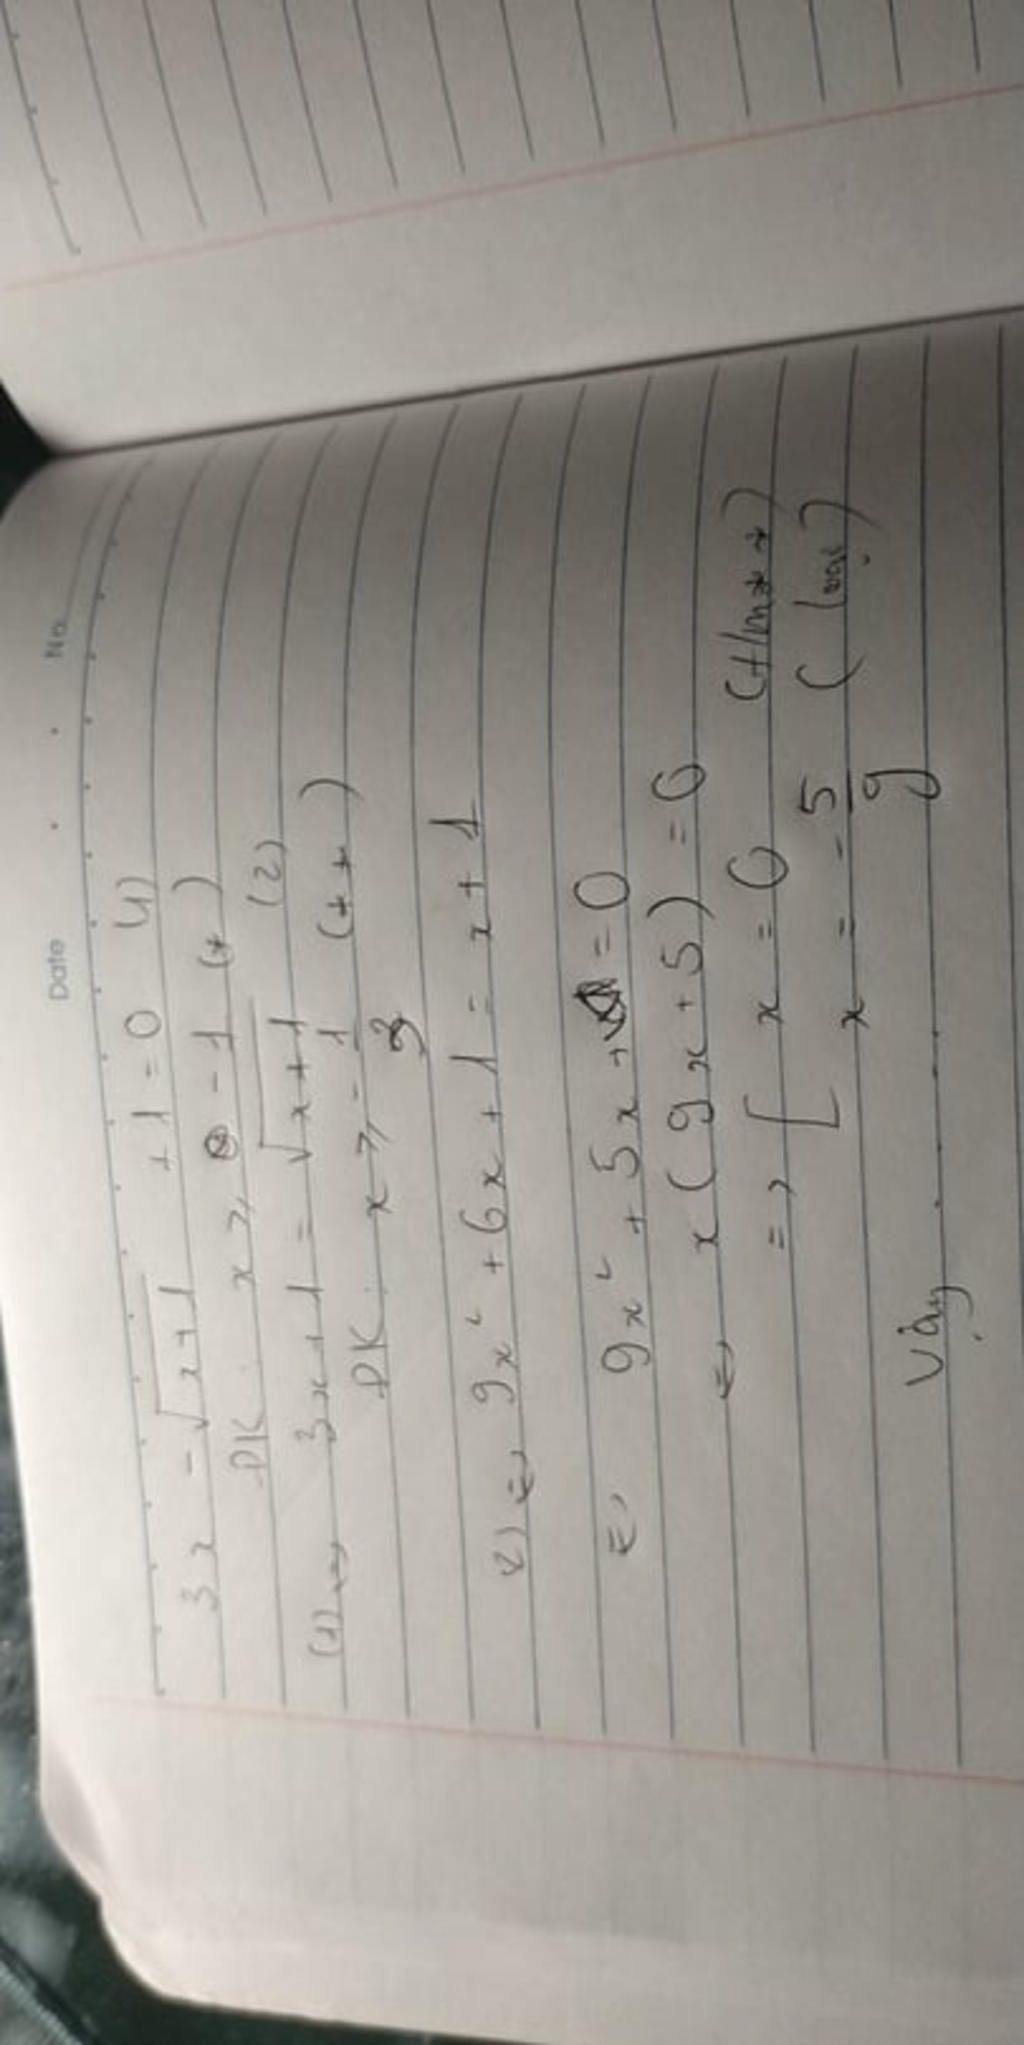 Date . . No.
3x - √x+1 + 1 = 0 (1)
ĐK: x ≥ -1 (*)
(1) <=> 3x+1 = √x+1 (2)
ĐK: x ≥ -1/3 (**)
(2) <=> 9x² + 6x + 1 = x + 1
<=> 9x² + 5x = 0
<=> x(9x+5) = 0
=> [ x = 0 (t/m **)
x = -5/9 (loại)
Vậy ........